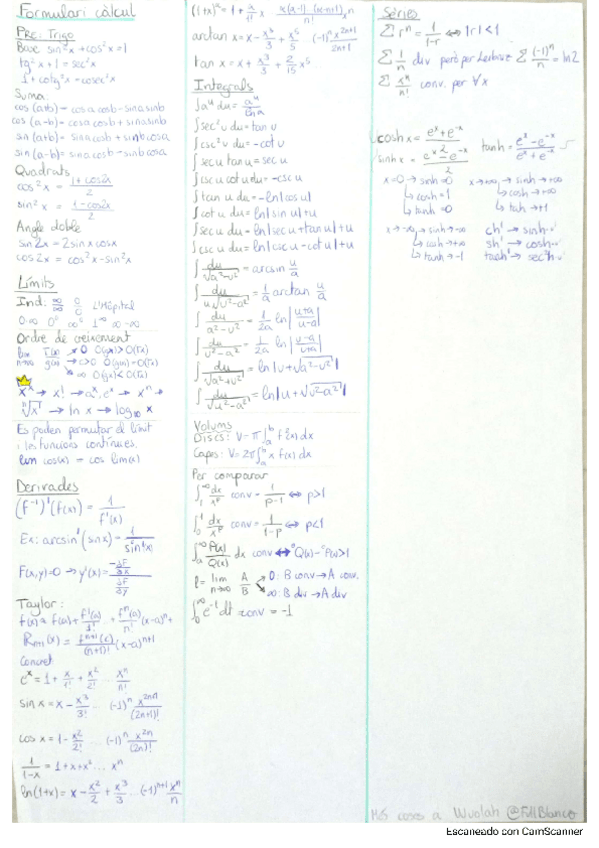 Formulari càlcul
Pre: Trigo
Base sin²x + cos²x = 1
tg²x + 1 = sec²x
1 + cotg²x = cosec²x
Suma:
cos (a+b) = cosa cosb - sina sinb
cos (a-b) = cosa cosb + sina sinb
sin (a+b) = sina cosb + sinb cosa
sin (a-b) = sina cosb - sinb cosa
Quadrats
cos²x = (1 + cos2x)/2
sin²x = (1 - cos2x)/2
Angle doble
sin 2x = 2 sin x cos x
cos 2x = cos²x - sin²x
Límits
Ind: ∞/∞ 0/0 L'Hôpital
0·∞ 0⁰ ∞⁰ 1^∞ ∞-∞
Ordre de creixement
x^x → x! → a^x, e^x → x^n →
ⁿ√x → ln x → log₁₀ x
Es poden permutar el límit
i les funcions contínues.
lim cos(x) = cos lim(x)
Derivades
(f⁻¹)'(f(x)) = 1/f'(x)
Ex: arcsin'(sin x) = 1/sin'(x)
F(x,y)=0 → y'(x) = (-∂F/∂x)/(∂F/∂y)
Taylor:
f(x) = f(a) + f'(a)/1! + fⁿ(a)/n! (x-a)ⁿ +
Rₙ₊₁(x) = fⁿ⁺¹(c)/(n+1)! (x-a)ⁿ⁺¹
Concret
e^x = 1 + x/1! + x²/2! ... xⁿ/n!
sin x = x - x³/3! ... (-1)ⁿ x²ⁿ⁺¹/(2n+1)!
cos x = 1 - x²/2! ... (-1)ⁿ x²ⁿ/(2n)!
1/(1-x) = 1 + x + x² ... xⁿ
ln(1+x) = x - x²/2 + x³/3 ... (-1)ⁿ⁺¹ xⁿ/n
arctan x = x - x³/3 + x⁵/5 (-1)ⁿ x²ⁿ⁺¹/2n+1
tan x = x + x³/3 + 2/15 x⁵
Integrals
∫aᵘ du = aᵘ/ln a
∫sec²u du = tan u
∫csc²u du = -cot u
∫sec u tan u = sec u
∫csc u cot u du = -csc u
∫tan u du = -ln|cos u|
∫cot u du = ln|sin u| + u
∫sec u du = ln|sec u + tan u| + u
∫csc u du = ln|csc u - cot u| + u
∫du/√(a²-u²) = arcsin u/a
∫du/(u√(u²-a²)) = 1/a arctan u/a
∫du/(a²-u²) = 1/2a ln|(u+a)/(u-a)|
∫du/(u²-a²) = 1/2a ln|(u-a)/(u+a)|
∫du/√(a²+u²) = ln|u + √(a²-u²)|
∫du/√(u²-a²) = ln|u + √(u²-a²)|
Volums
Discs: V = π∫ₐᵇ f²(x) dx
Capes: V = 2π∫ₐᵇ x f(x) dx
Per comparar
∫₁^∞ dx/x^p conv = 1/(p-1) ⇔ p>1
∫₀¹ dx/x^p conv = 1/(1-p) ⇔ p<1
∫ₐ^∞ P(x)/Q(x) dx conv ⇔ °Q(x) - °P(x) > 1
l = lim n→∞ A/B → 0: B conv → A conv.
∞: B div → A div
∫₀^∞ e⁻ᵗ dt = conv = -1
Sèries
∑ rⁿ = 1/(1-r) ⇔ |r|<1
∑ 1/n div però per Leibniz ∑ (-1)ⁿ/n = ln2
∑ xⁿ/n! conv. per ∀x
cosh x = (e^x + e^-x)/2 tanh = (e^x - e^-x)/(e^x + e^-x)
sinh x = (e^x - e^-x)/2
x=0 → sinh=0 x→+∞ → sinh→+∞
↳ cosh=1 ↳ cosh→+∞
↳ tanh=0 ↳ tanh→+1
x→-∞ → sinh→-∞ ch' → sinh·u'
↳ cosh→+∞ sh' → cosh·u'
↳ tanh→-1 tanh' → sech²·u'
Més coses a Wuolah @FullBlanco
Escaneado con CamScanner